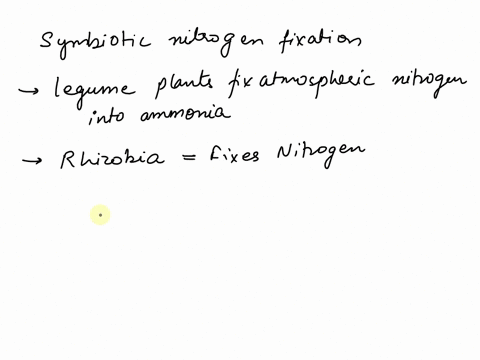 Symbiotic nitrogen fixation
→ legume plants fix atmospheric nitrogen
into ammonia
→ Rhizobia = fixes Nitrogen